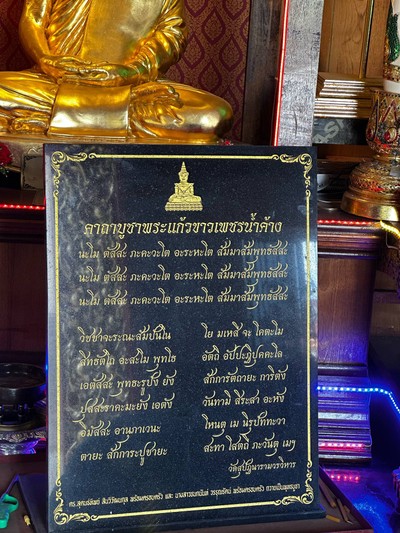 คาถาบูชาพระแก้วขาวเพชรน้ำค้าง
นะโม ตัสสะ ภะคะวะโต อะระหะโต สัมมาสัมพุทธัสสะ
นะโม ตัสสะ ภะคะวะโต อะระหะโต สัมมาสัมพุทธัสสะ
นะโม ตัสสะ ภะคะวะโต อะระหะโต สัมมาสัมพุทธัสสะ
วิชชาจะระณะสัมปันโน โย มเหสี จะ โคตะโม
สิทธัตโถ อะสะโม พุทโธ อัตถิ อัปปะฏิปุคคะโล
เอตัสสะ พุทธะรูปัง ยัง สักการัตถายะ การิตัง
ปัสสะราคะมะยัง เอตัง วันทามิ สิระสา อะหัง
อิมัสสะ อานุภาเวนะ โหนตุ เม นิรุปัททะวา
ตายะ สักการะปูชายะ สะทา โสตถี ภะวันตุ เมฯ
วัดสุปัฏนารามวรวิหาร
พร้อมครอบครัว และ พร้อมครอบครัว ถวายเป็นพุทธบูชา